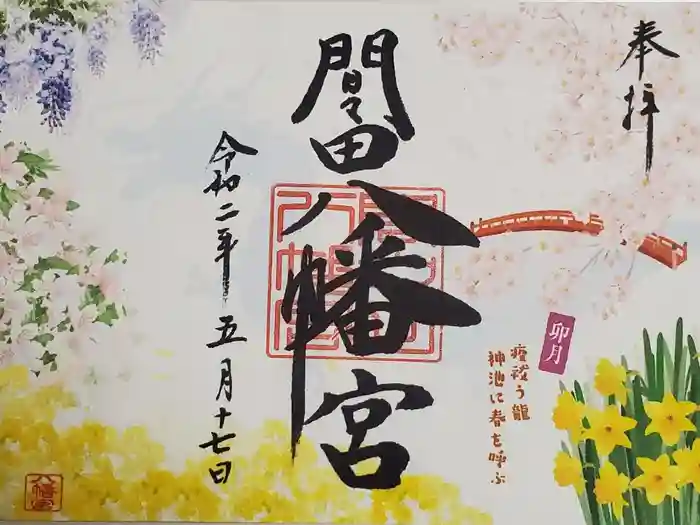 奉拝
卯月
疫祓う龍
神池に春を呼ぶ
間々田八幡宮
令和二年五月十七日
八幡宮